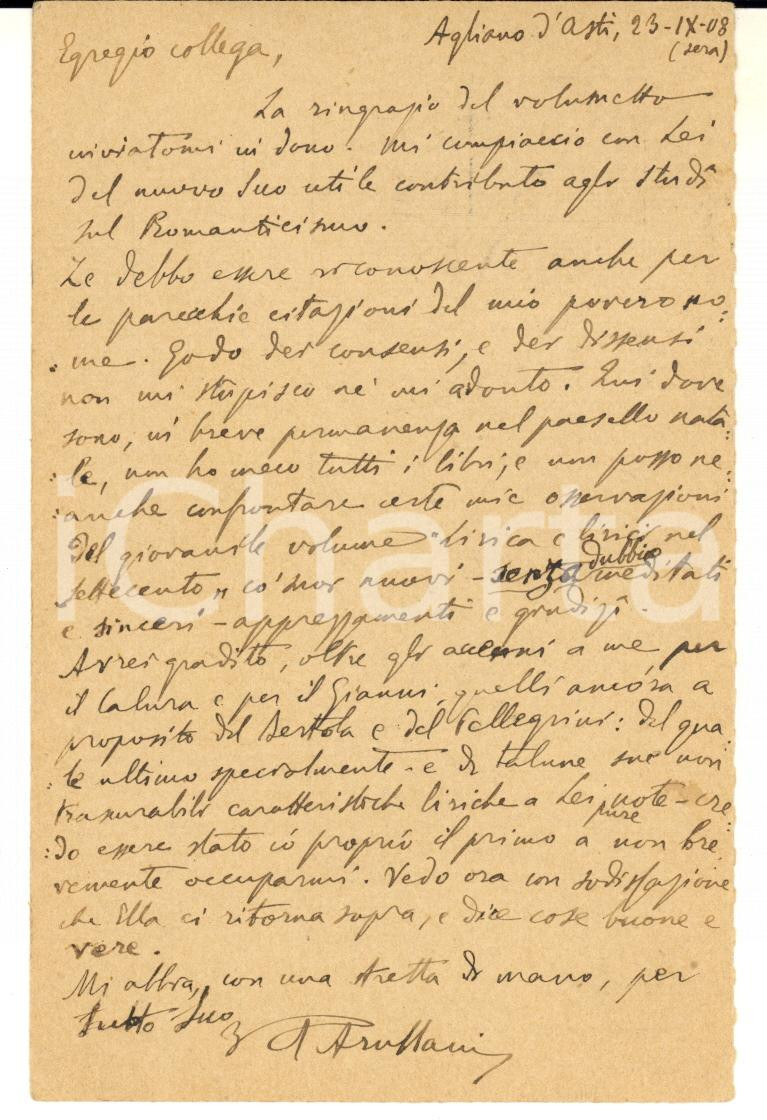 Agliano d'Asti, 23-IX-08
(sera)
Egregio collega,
La ringrazio del volumetto
inviatomi in dono. Mi compiaccio con Lei
del nuovo Suo utile contributo agli studî
sul Romanticismo.
Le debbo essere riconoscente anche per
le parecchie citazioni del mio povero no:
me. Godo dei consensi, e dei dissensi
non mi stupisco né mi adonto. Qui dove
sono, in breve permanenza nel paesello nata:
:le, non ho meco tutti i libri, e non posso ne:
:anche confrontare certe mie osservazioni
del giovanile volume "Lirica e lirici nel
settecento" co' suoi nuovi - senza dubbio meditati
e sinceri - apprezzamenti e giudizî.
Avrei gradito, oltre gli accenni a me per
il Calura e per il Gianni, quelli ancóra a
proposito del Bertola e del Pellegrini: del qua:
:le ultimo specialmente - e di talune sue non
trascurabili caratteristiche liriche a Lei pure note - cre:
:do essere stato io proprio il primo a non bre:
vemente occuparmi. Vedo ora con sodisfazione
che Ella ci ritorna sopra, e dice cose buone e
vere.
Mi abbia, con una stretta di mano, per
tutto Suo
A Arullani
iCharta